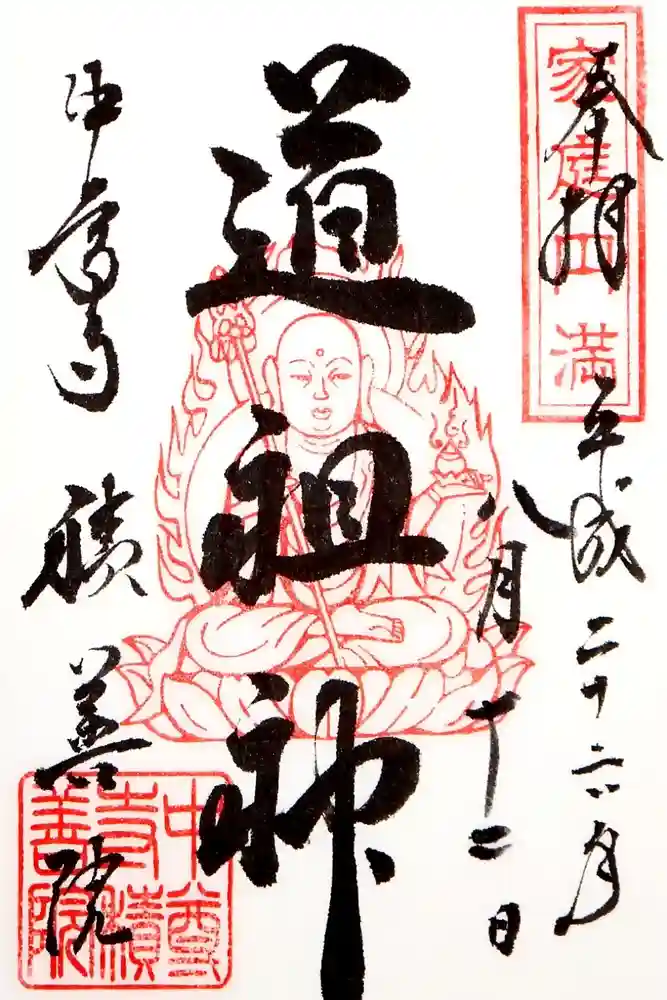 奉拝
家庭円満
平成二十六年
八月十二日
道祖神
中尊寺 積善院
中尊
寺積
善院